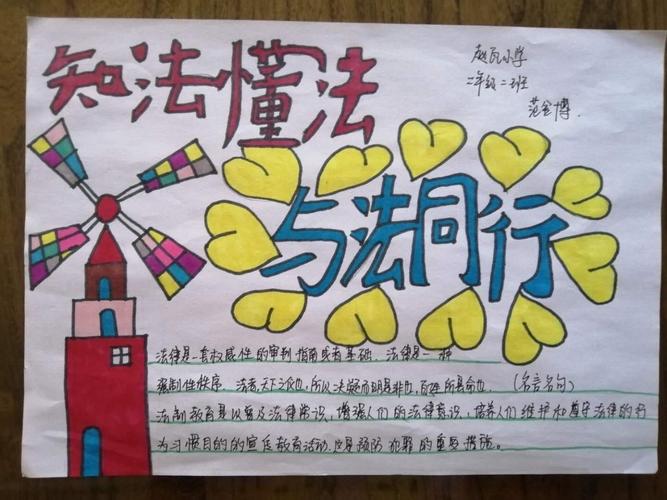 知法懂法
赵瓦小学
二年级二班
范金博
与法同行
法律是一套权威性的审判指南或者基础。法律是一种
强制性秩序。法者,天下之公也,所以决疑而明是非也,百姓所县命也。(名言名句)
法制教育是以普及法律常识,增强人们的法律意识,培养人们维护和遵守法律的行
为习惯目的的宣传教育活动,这是预防犯罪的重要措施。